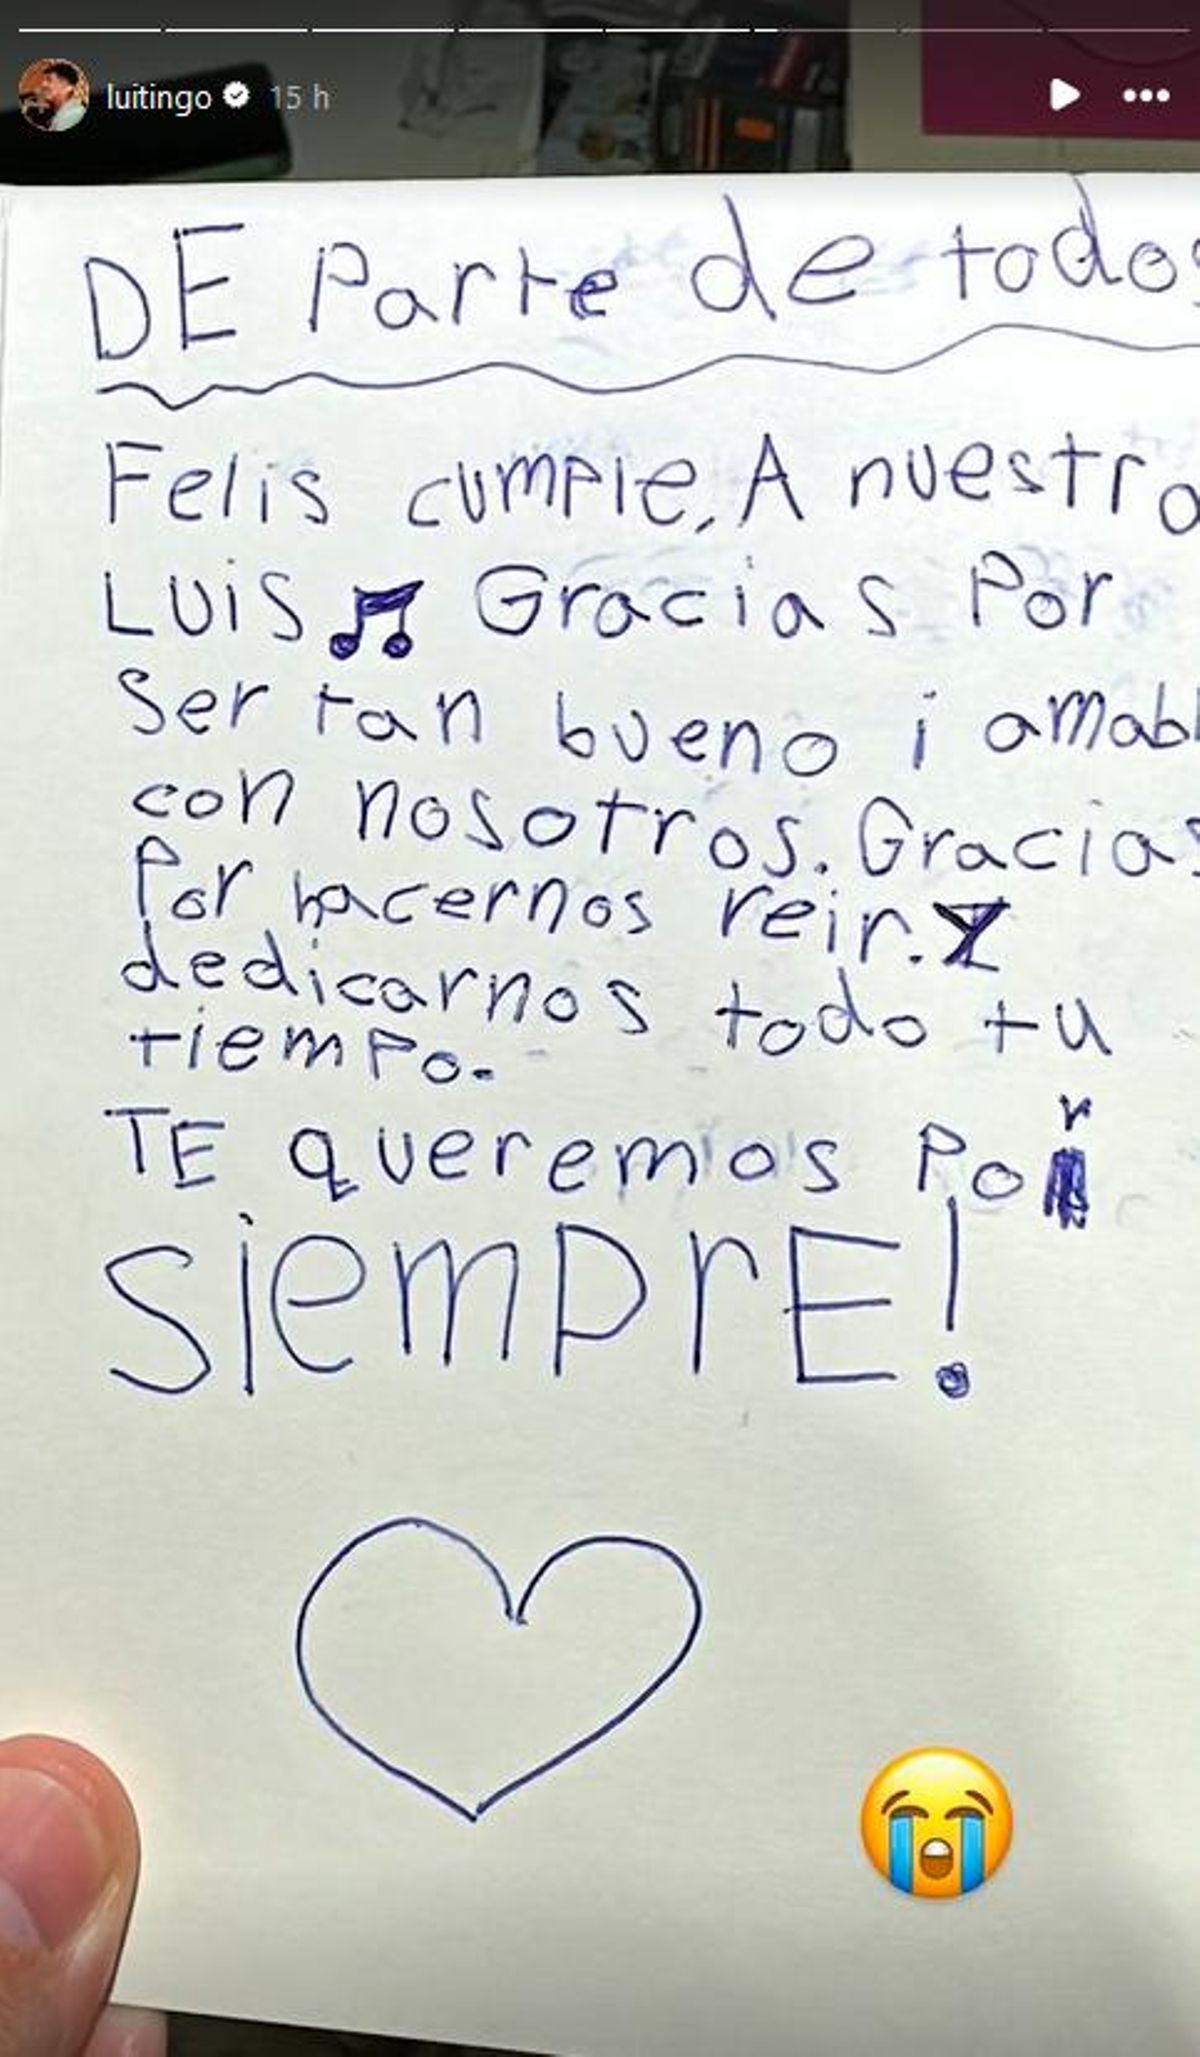 luitingo 15 h
DE Parte de todos
Felis cumple. A nuestro
LUiS Gracias Por
Ser tan bueno i amabl
con nosotros. Gracias
Por hacernos reir. Y
dedicarnos todo tu
tiempo.
TE queremos Por
SiempreE!